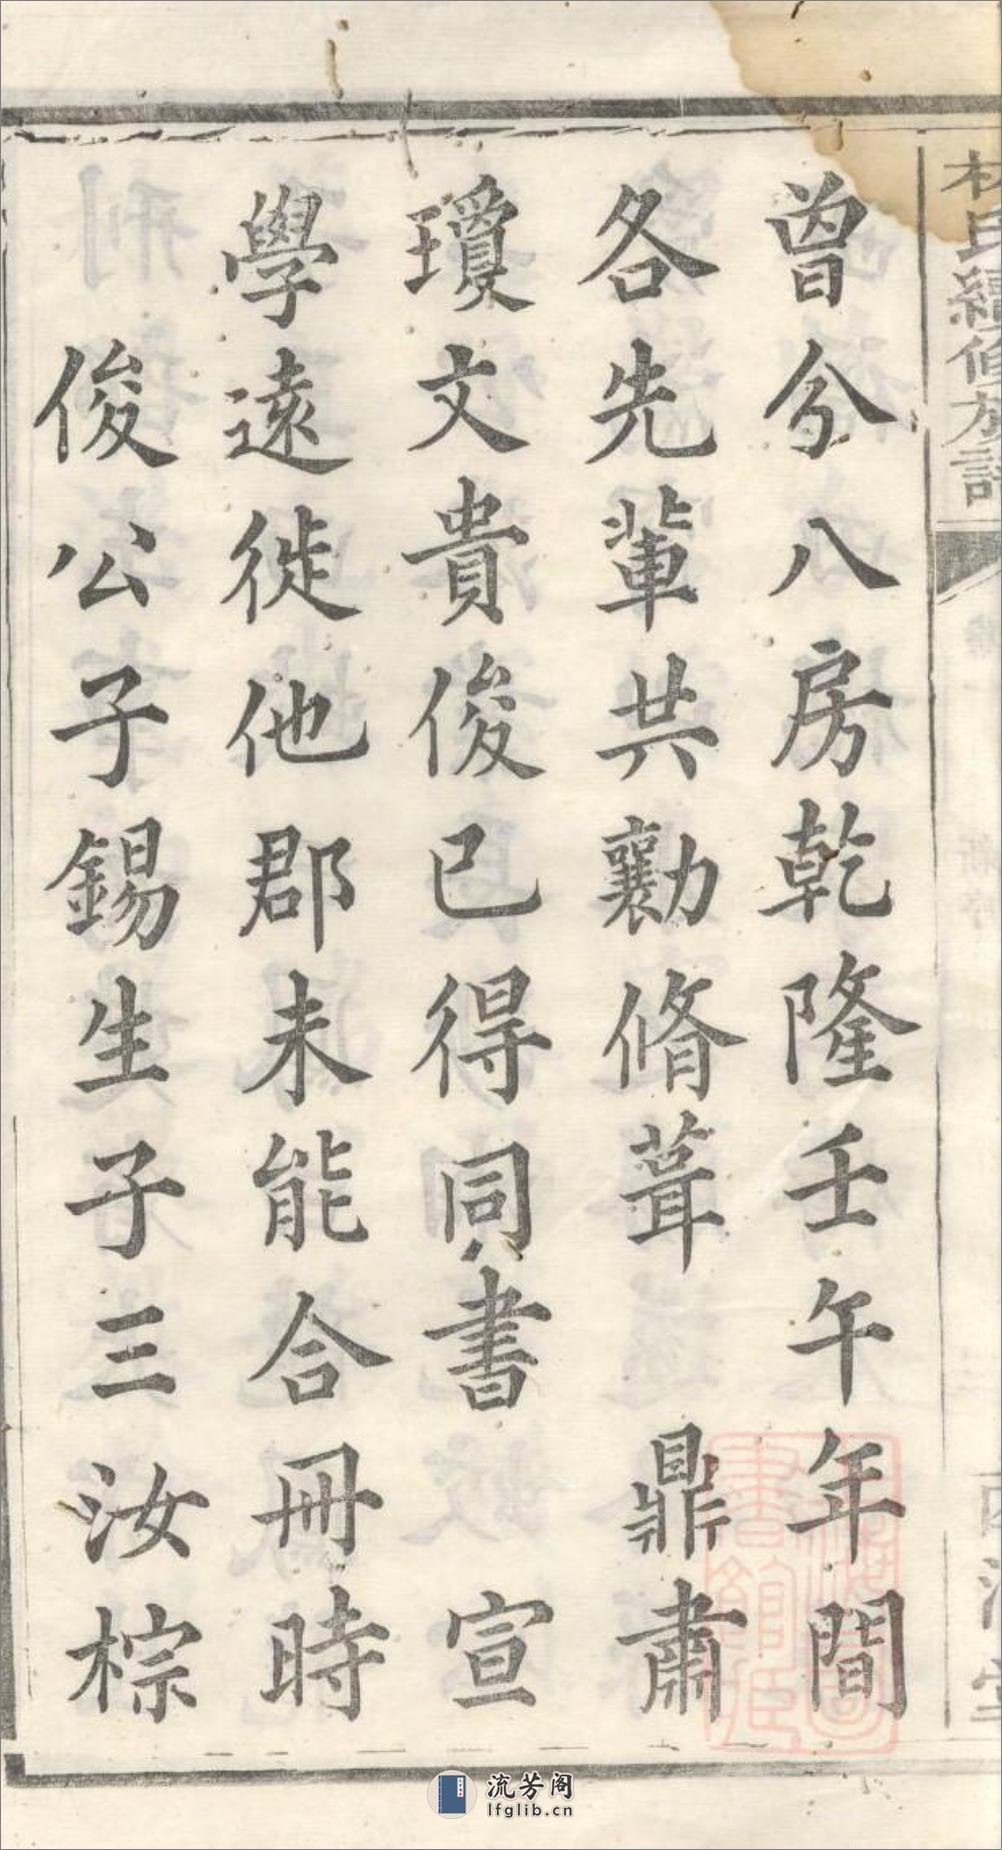 林氏續修族譜
曾兮八房乾隆壬午年間
各先輩共勷脩葺 鼎肅
瓊文貴俊已得同書 宣
學遠徙他郡未能合冊時
俊公子錫生子三汝棕
流芳阁
lfglib.cn